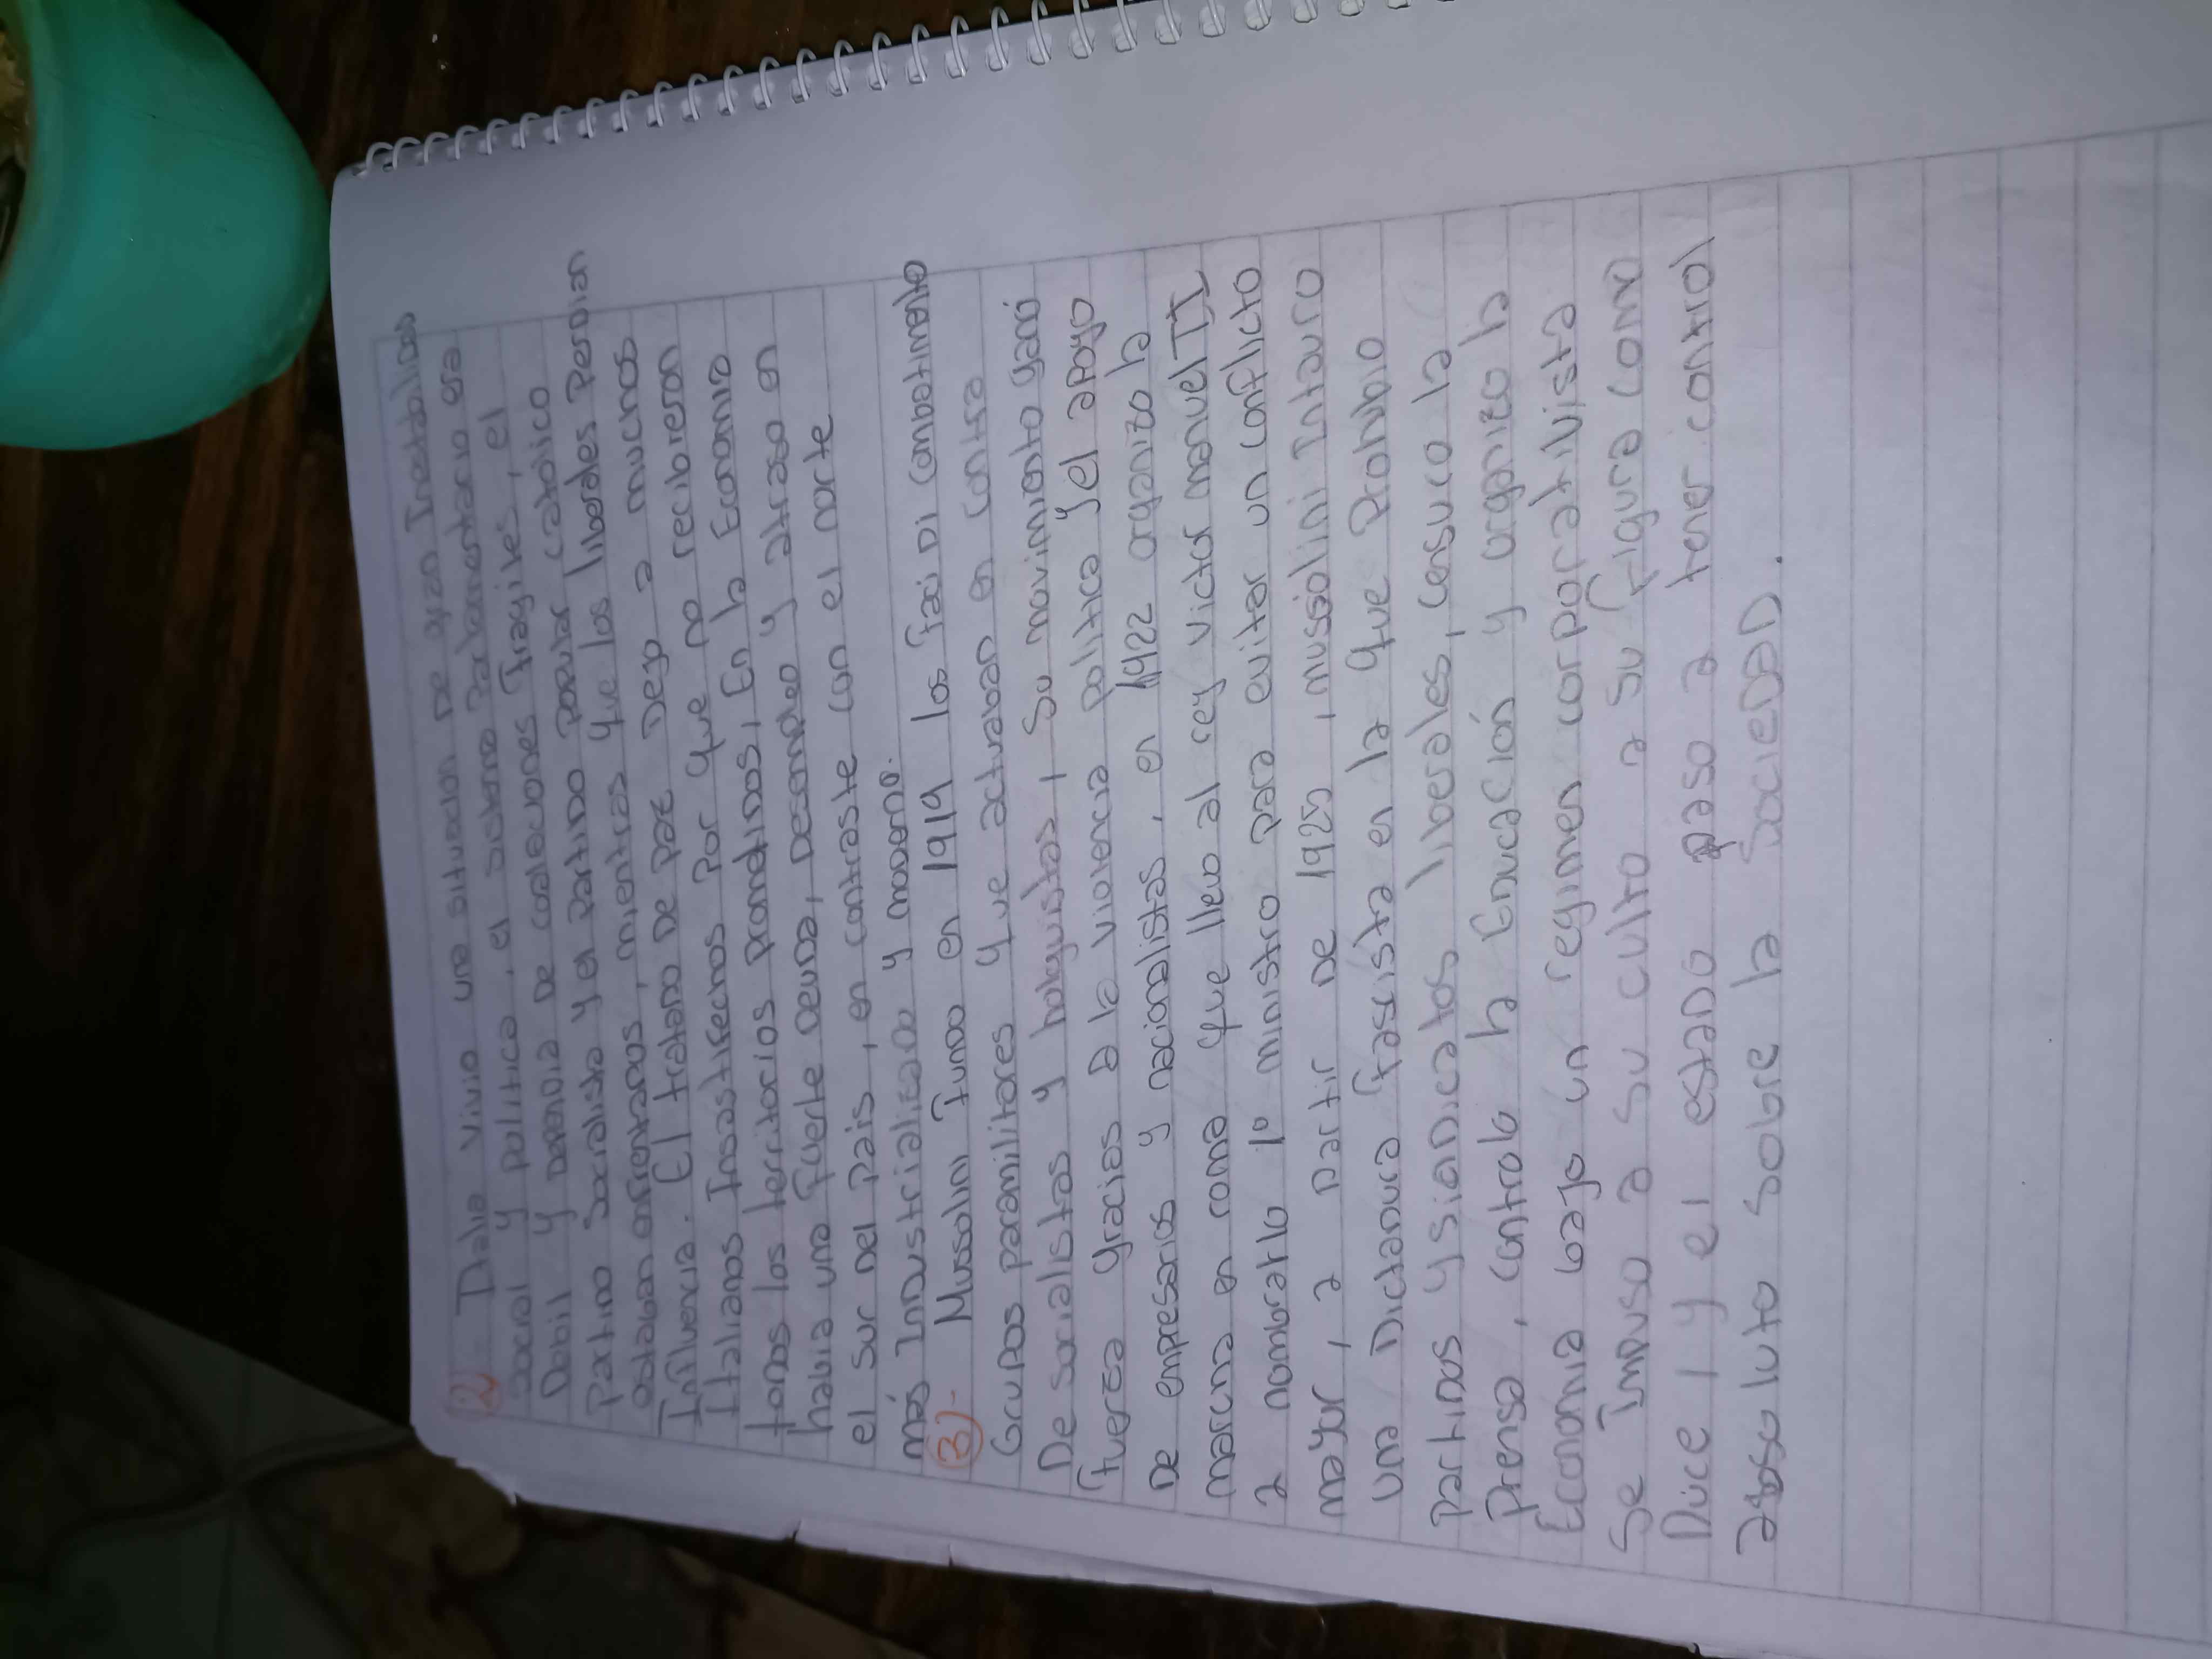 2 - Italia vivio una situacion De gran Inestalidas
social y politica, el sistema Parlamentario era
Debil y Dependia De coaleciones Fragiles, el
Partido Socialista y el Partido Popular catolico
estaban enfrentados, mientras que los liberales Perdian
Influencia. El tratado De paz Dejo a muchos
Italianos Insastifechos Por que no recibieron
todos los territorios prometidos, En la Economia
habia una fuerte Deuda, Desempleo y atraso en
el sur Del Pais, en contraste con el norte
más Industrializado y moderno.
3)- Mussolini Fundo en 1919 los fasi Di combatimento
Grupos paramilitares que actuaban en contra
De socialistas y holguistas, su movimiento ganó
fuersa gracias a la violencia politica y el apoyo
De empresarios y nacionalistas, en 1922 organizo la
marcha en roma que llevo al rey Victor manuel III
a nombrarlo 1º ministro para evitar un conflicto
mayor, a partir De 1925, mussolini Intauro
una Dictadura fascista en la que Prohibio
partidos y siandicatos liberales, censuro la
prensa, controlo la Educación y organizo la
Economia bajo un regimen corporatiVista
Se Impuso a su culto a su figura como
Duce l y el estado paso a tener control
absoluto sobre la SocieDaD.